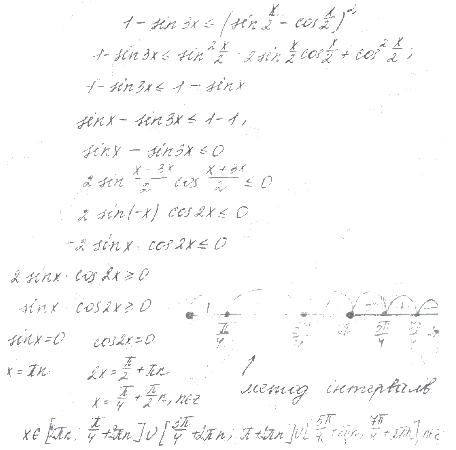 1 - sin3x ≤ (sin x/2 - cos x/2)²
1 - sin3x ≤ sin² x/2 - 2 sin x/2 cos x/2 + cos² x/2;
1 - sin3x ≤ 1 - sinx
sinx - sin3x ≤ 1 - 1,
sinx - sin3x ≤ 0
2 sin (x - 3x)/2 cos (x + 3x)/2 ≤ 0
2 sin(-x) cos2x ≤ 0
-2 sinx · cos2x ≤ 0
2 sinx · cos2x ≥ 0
sinx · cos2x ≥ 0
sinx = 0 cos2x = 0
x = πn 2x = π/2 + πn
x = π/4 + π/2 n, n∈Z
π/4 5π/4
метод інтервалів
x ∈ [2πn; π/4 + 2πn] ∪ [3π/4 + 2πn; π + 2πn] ∪ [5π/4 + 2πn; 7π/4 + 2πn] n∈Z